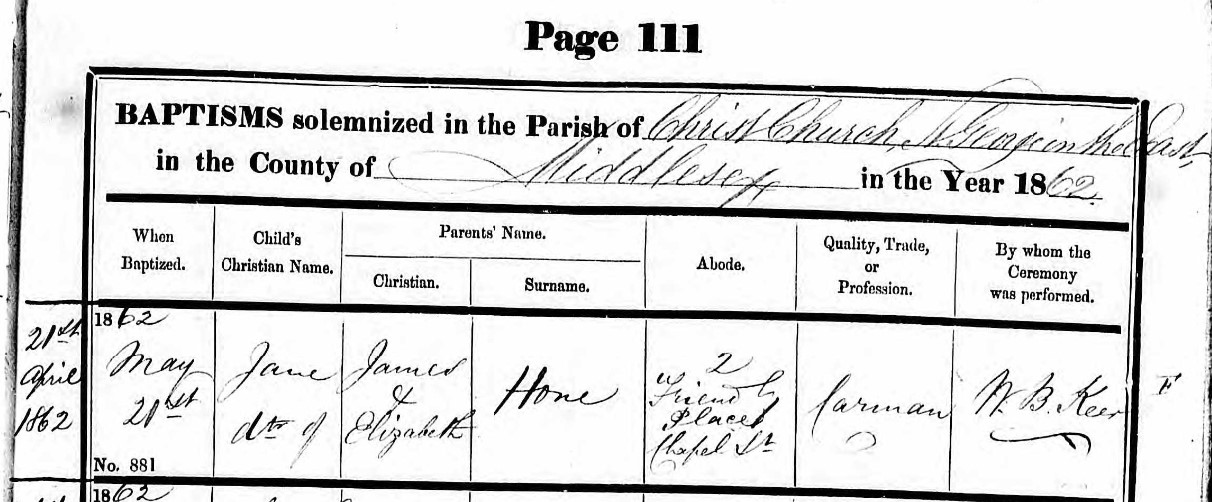 Page 111
BAPTISMS solemnized in the Parish of Christ Church, St George in the East,
in the County of Middlesex in the Year 1862.
When Baptized.
Child's Christian Name.
Parents' Name.
Christian.
Surname.
Abode.
Quality, Trade, or Profession.
By whom the Ceremony was performed.
21st
April
1862
1862
May
21st
No. 881
Jane
dtr of
James
&
Elizabeth
Hone
2
Friendly
Place
Chapel St
Carman
W. B. Keer
F
1862